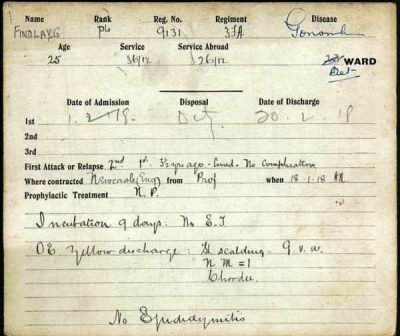 Name Rank Reg. No. Regiment Disease
FINDLAY.G Pte 9131 3FA Gonorrh
Age Service Service Abroad WARD
25 36/12 26/12 Det
Date of Admission Disposal Date of Discharge
1st 1.2.18. Dty 20.2.18
2nd
3rd
First Attack or Relapse 2nd 1st. 3½ yrs ago - cured - No Complication
Where contracted Newcastle (Eng) from Prof when 18.1.18
Prophylactic Treatment N.P.
Incubation 9 days: No E.T
O.E. Yellow discharge: scalding
N M = 1
Chordee.
No Epididymitis